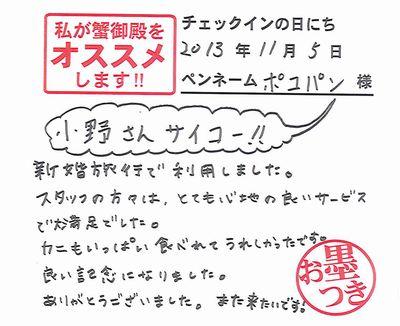 私が蟹御殿を
オススメ
します!!
チェックインの日にち
2013年11月5日
ペンネーム ポコパン 様
小野さんサイコー!!
新婚旅行で利用しました。
スタッフの方々は、とても心地の良いサービス
で大満足でした。
カニもいっぱい食べれてうれしかったです。
良い記念になりました。
ありがとうございました。また来たいです!
お墨つき